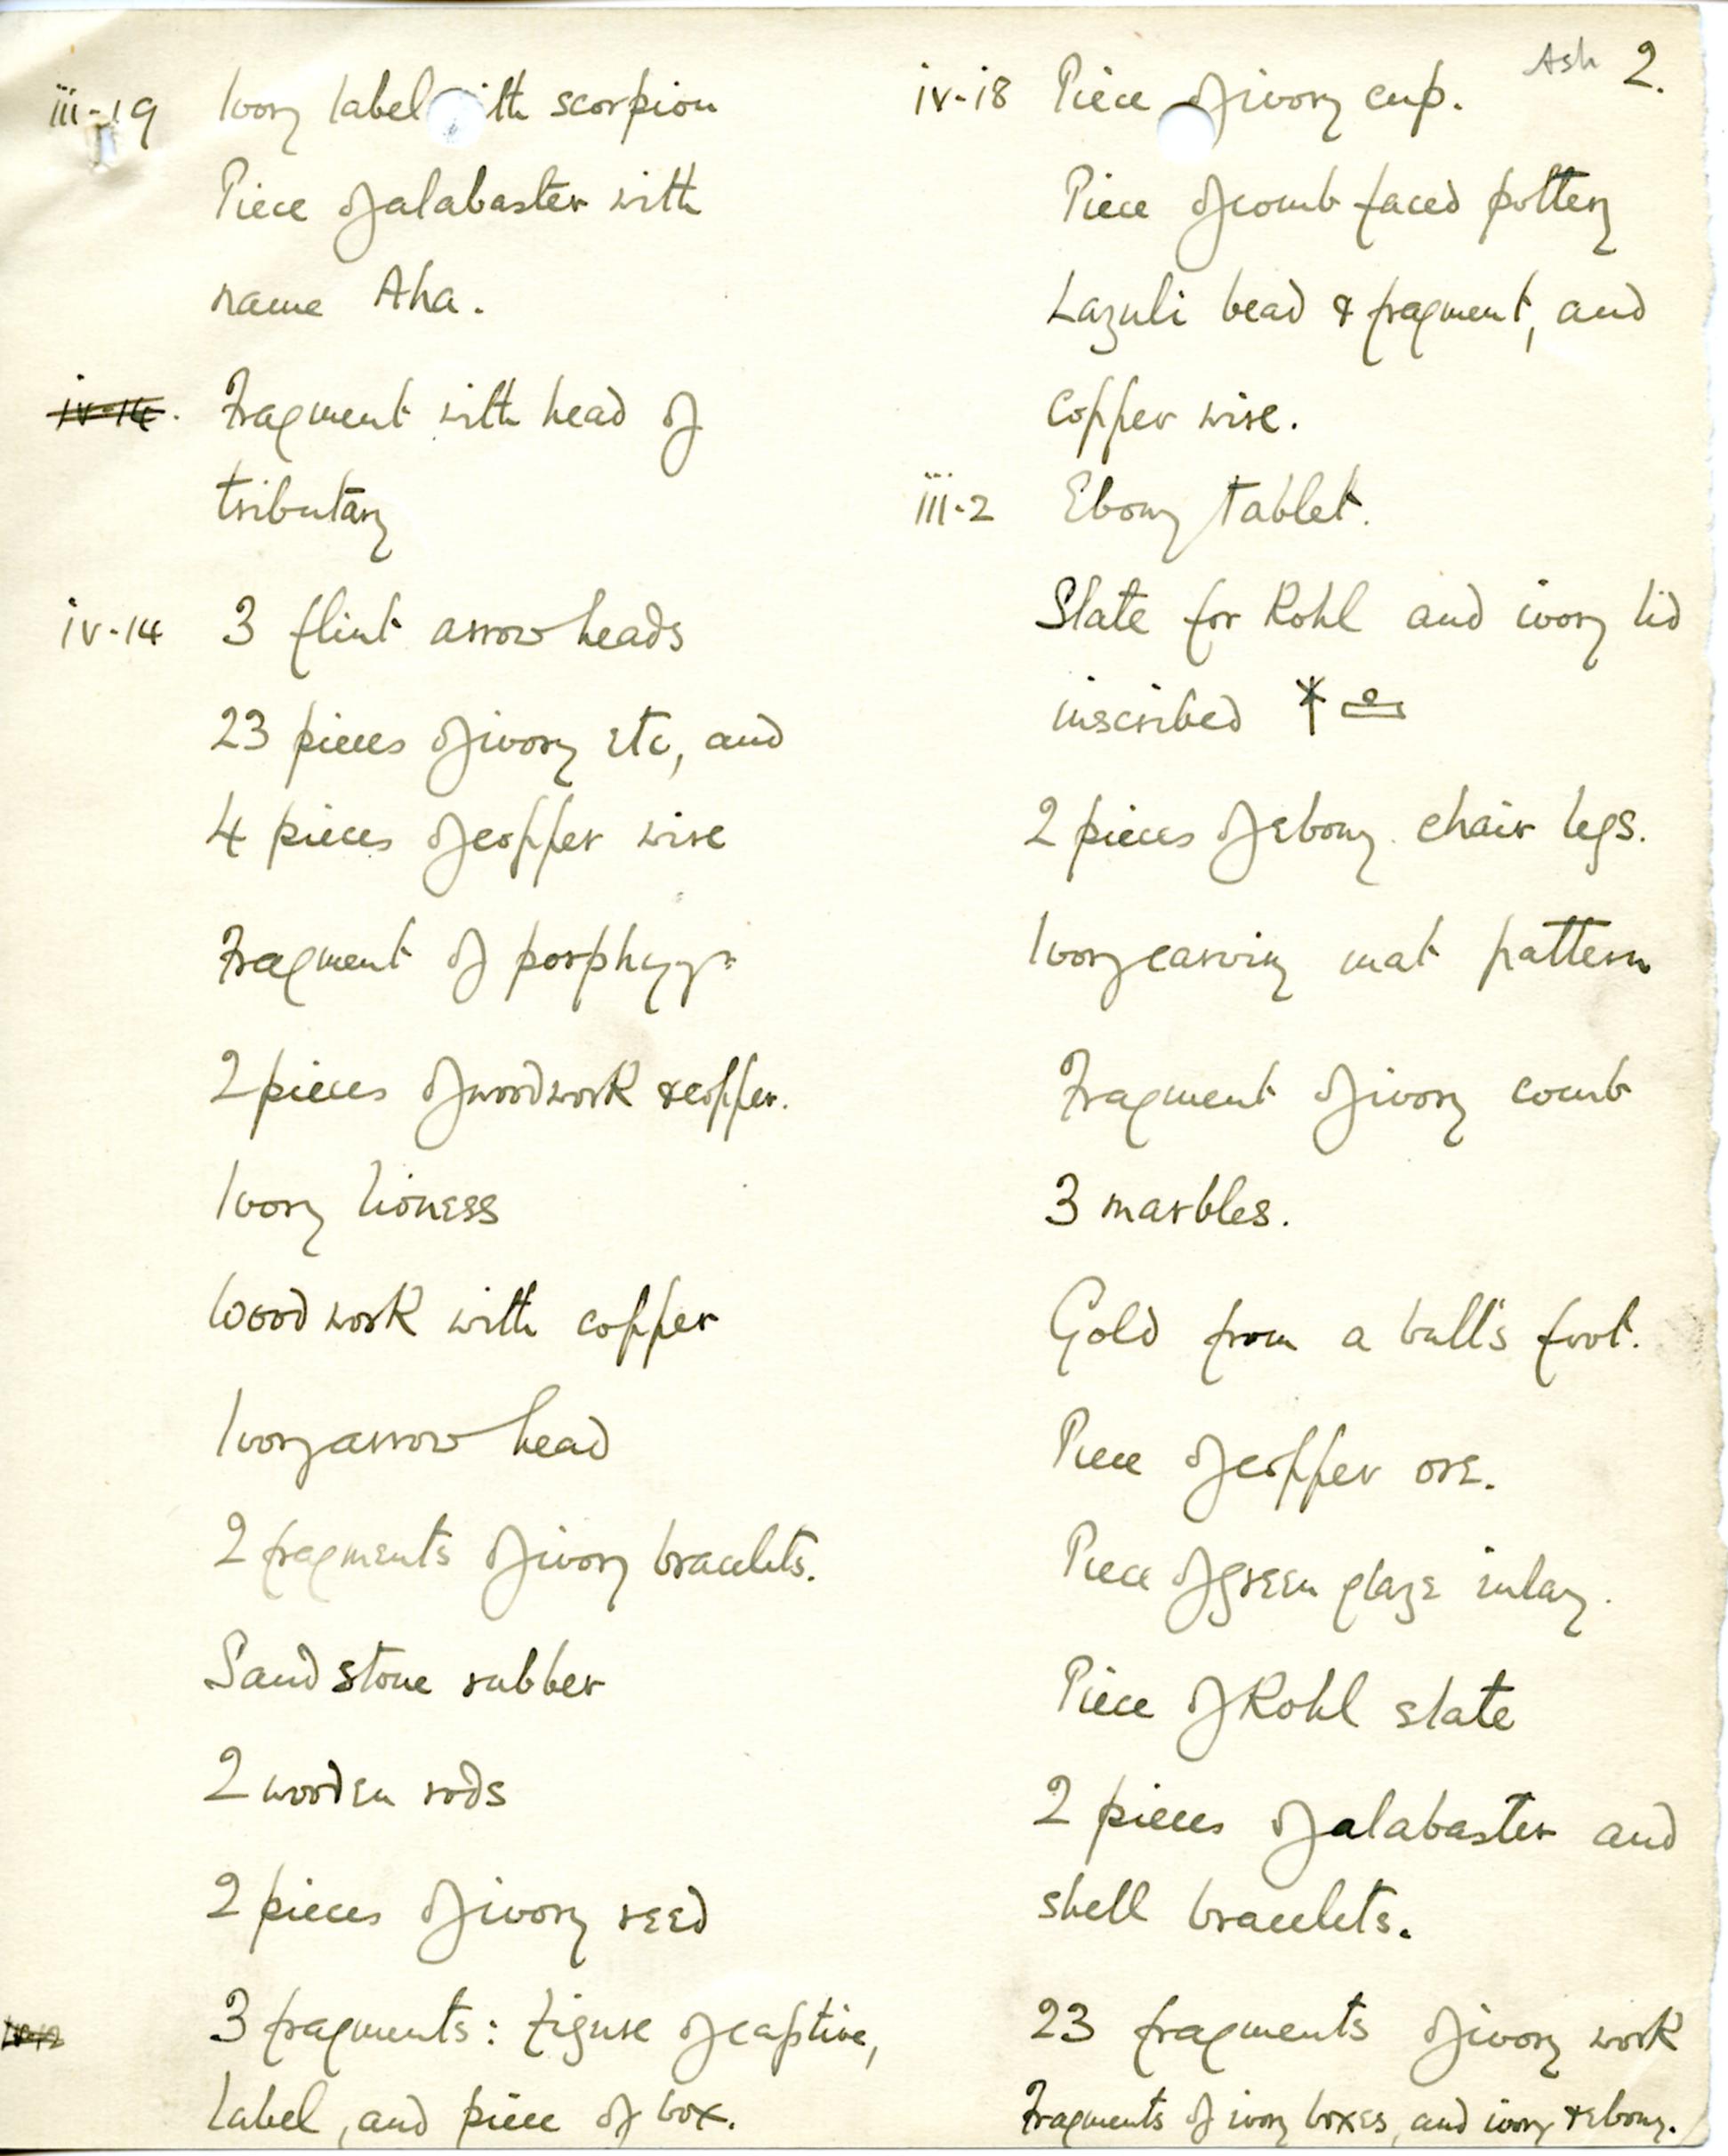 Ash 2.
iii-19 Ivory label with scorpion
Piece of alabaster with
name Aha.
iv-14. Fragment with head of
tributary
iv-14 3 flint arrow heads
23 pieces of ivory etc, and
4 pieces of copper wire
Fragment of porphyry
2 pieces of woodwork & copper.
Ivory lioness
Wood work with copper
Ivory arrow head
2 fragments of ivory bracelets.
Sand stone rubber
2 wooden rods
2 pieces of ivory reed
3 fragments: figure of captive,
label, and piece of box.
iv-18 Piece of ivory cup.
Piece of comb faced pottery
Lazuli bead & fragment, and
copper wire.
iii-2 Ebony tablet.
Slate for Kohl and ivory lid
inscribed
2 pieces of ebony chair legs.
Ivory carving mat pattern
Fragment of ivory comb
3 marbles.
Gold from a bull's foot.
Piece of copper ore.
Piece of green glaze inlay.
Piece of Kohl slate
2 pieces of alabaster and
shell bracelets.
23 fragments of ivory work
Fragments of ivory boxes, and ivory & ebony.